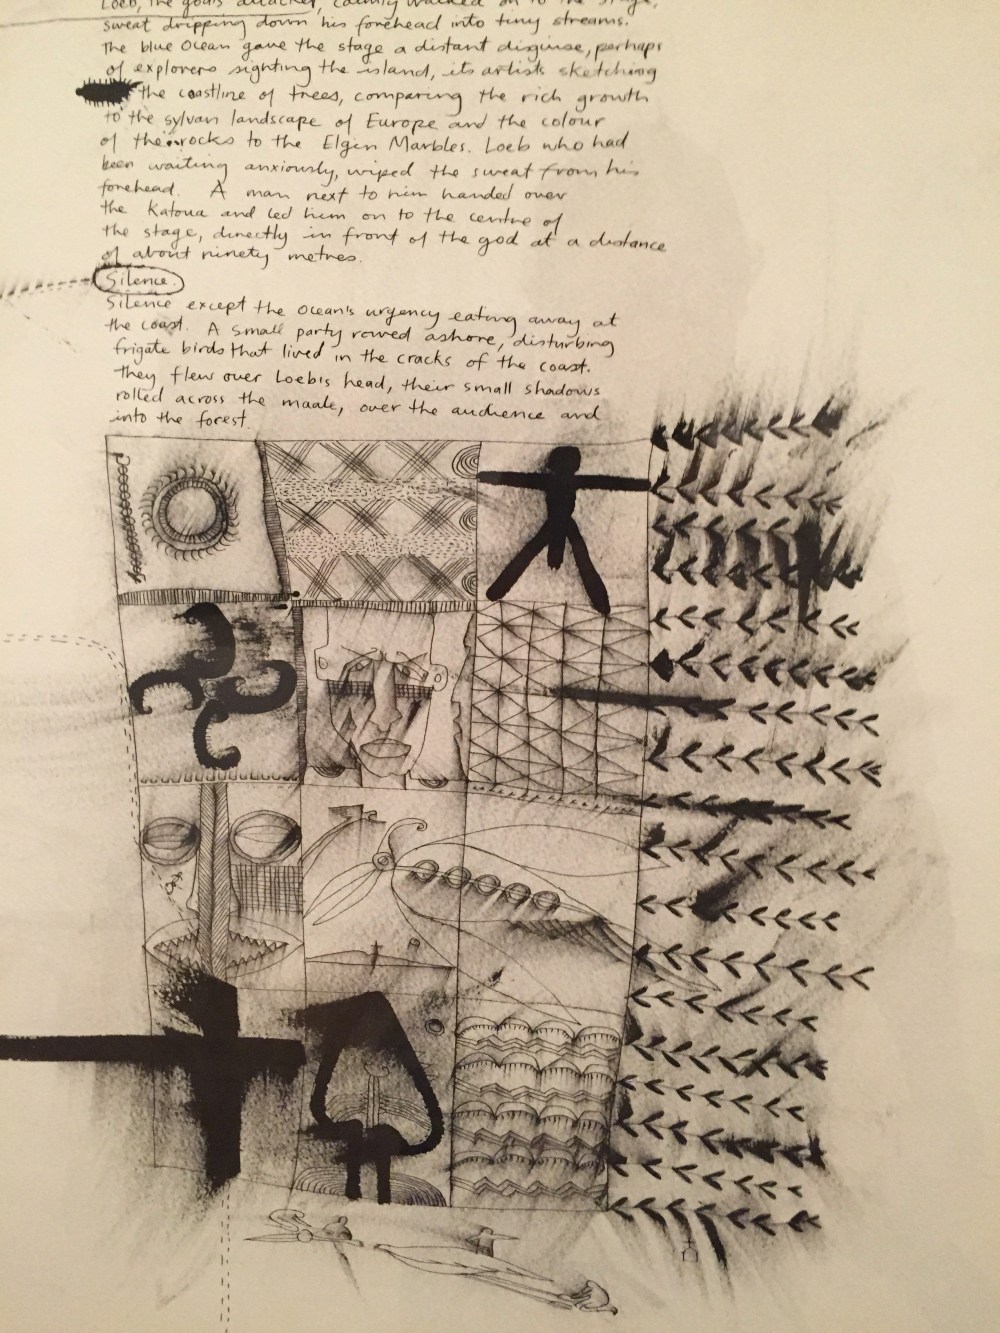 Loeb, the god's attacker, calmly walked on to the stage,
sweat dripping down his forehead into tiny streams.
The blue ocean gave the stage a distant disguise, perhaps
of explorers sighting the island, its artists sketching
the coastline of trees, comparing the rich growth
to the sylvan landscape of Europe and the colour
of the rocks to the Elgin Marbles. Loeb who had
been waiting anxiously, wiped the sweat from his
forehead. A man next to him handed over
the Katoua and led him on to the centre of
the stage, directly in front of the god at a distance
of about ninety metres.
Silence.
Silence except the ocean's urgency eating away at
the coast. A small party rowed ashore, disturbing
frigate birds that lived in the cracks of the coast.
They flew over Loeb's head, their small shadows
rolled across the maale, over the audience and
into the forest.